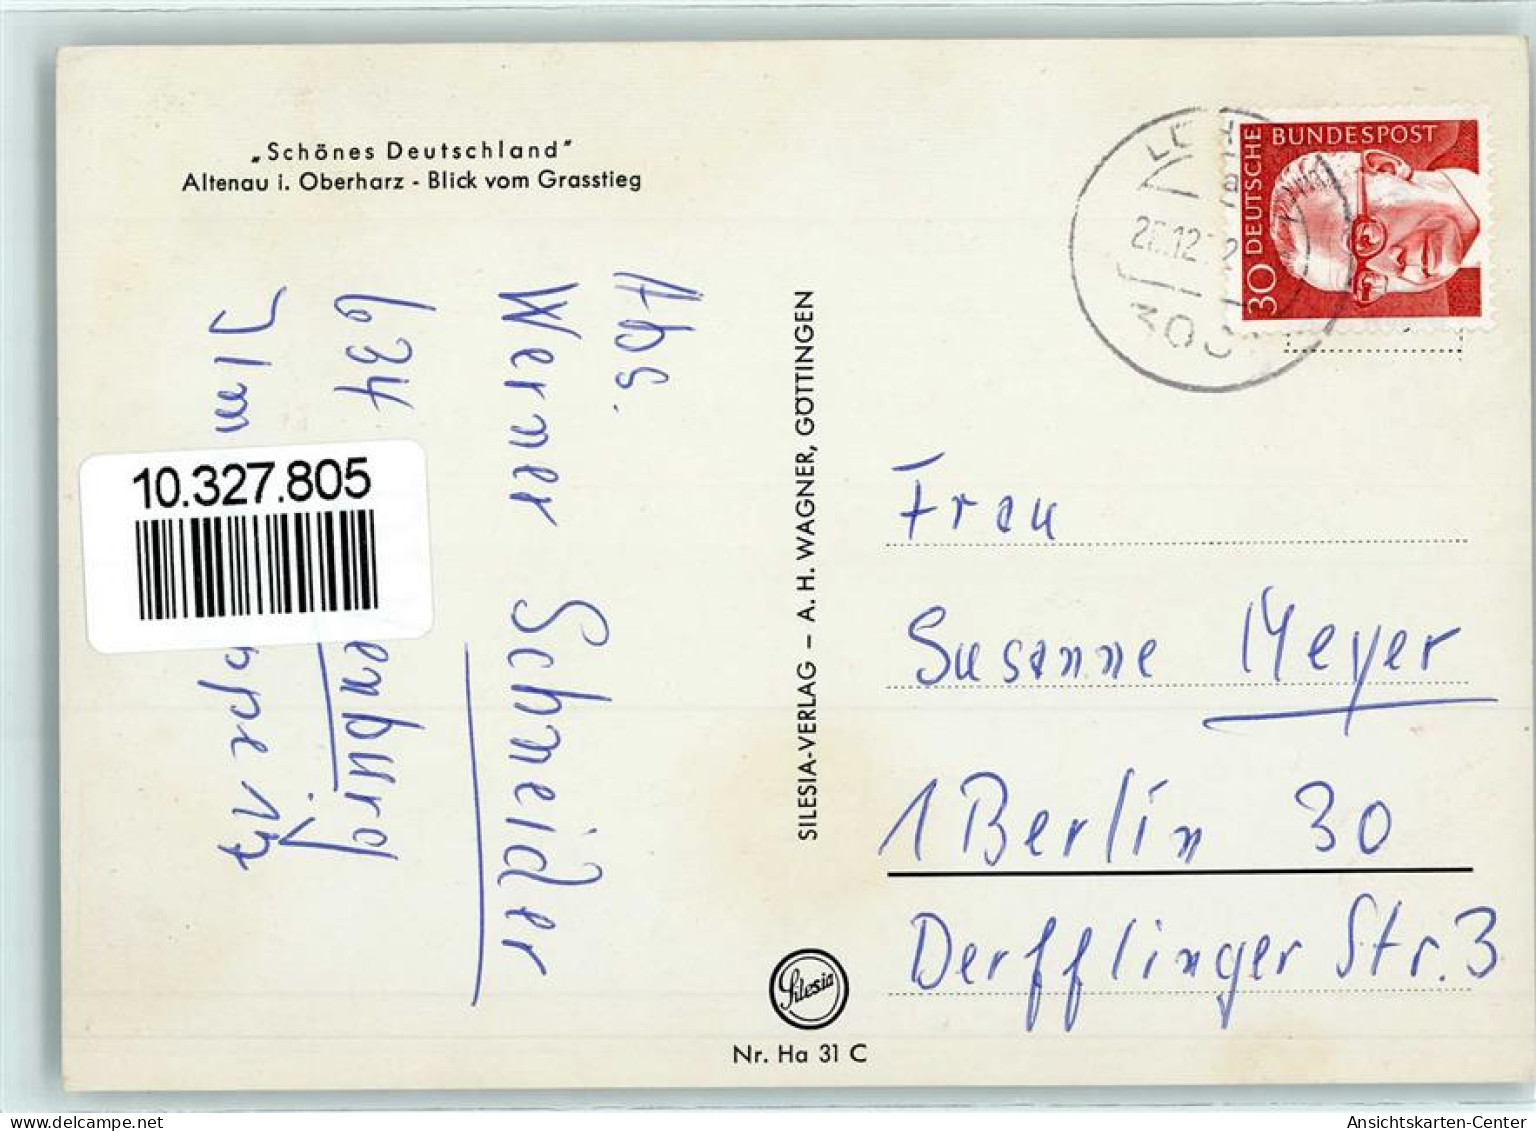 „Schönes Deutschland"
Altenau i. Oberharz - Blick vom Grasstieg
Abs.
Werner Schneider
634
10.327.805
SILESIA-VERLAG – A. H. WAGNER, GÖTTINGEN
30 DEUTSCHE BUNDESPOST
Frau
Susanne Meyer
1 Berlin 30
Derfflinger Str. 3
Silesia
Nr. Ha 31 C
www.delcampe.net
Ansichtskarten-Center